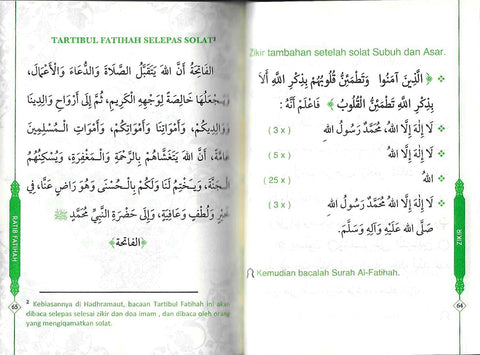 Zikir tambahan setelah solat Subuh dan Asar.
﴿ الَّذِينَ آمَنُوا وَتَطْمَئِنُّ قُلُوبُهُم بِذِكْرِ اللَّهِ أَلَا
بِذِكْرِ اللَّهِ تَطْمَئِنُّ الْقُلُوبُ ﴾ فَاعْلَمْ أَنَّهُ :
لَا إِلَهَ إِلَّا اللهُ، مُحَمَّدٌ رَسُولُ اللهِ (3 x)
لَا إِلَهَ إِلَّا اللهُ (5 x)
اللهُ (25 x)
لَا إِلَهَ إِلَّا اللهُ مُحَمَّدٌ رَسُولُ اللهِ (3 x)
صَلَّى اللهُ عَلَيْهِ وَآلِهِ وَسَلَّمَ.
Kemudian bacalah Surah Al-Fatihah.
ZIKIR
64
TARTIBUL FATIHAH SELEPAS SOLAT²
الفَاتِحَةُ أَنَّ اللهَ يَتَقَبَّلُ الصَّلَاةَ وَالدُّعَاءَ وَالْأَعْمَالَ،
وَيَجْعَلُهَا خَالِصَةً لِوَجْهِهِ الْكَرِيمِ، ثُمَّ إِلَى أَرْوَاحِ وَالِدِينَا
وَوَالِدِيكُمْ، وَأَمْوَاتِنَا وَأَمْوَاتِكُمْ، وَأَمْوَاتِ الْمُسْلِمِينَ
عَامَّةً، أَنَّ اللهَ يَتَغَشَّاهُمْ بِالرَّحْمَةِ وَالْمَغْفِرَةِ، وَيُسْكِنُهُمُ
الْجَنَّةَ، وَيَخْتِمُ لَنَا وَلَكُمْ بِالْحُسْنَى وَهُوَ رَاضٍ عَنَّا، فِي
خَيْرٍ وَلُطْفٍ وَعَافِيَةٍ، وَإِلَى حَضْرَةِ النَّبِيِّ مُحَمَّدٍ ﷺ
﴿الفَاتحة﴾
² Kebiasannya di Hadhramaut, bacaan Tartibul Fatihah ini akan
dibaca selepas selesai zikir dan doa imam , dan dibaca oleh orang
yang mengiqamatkan solat.
RATIB FATIHAH
65